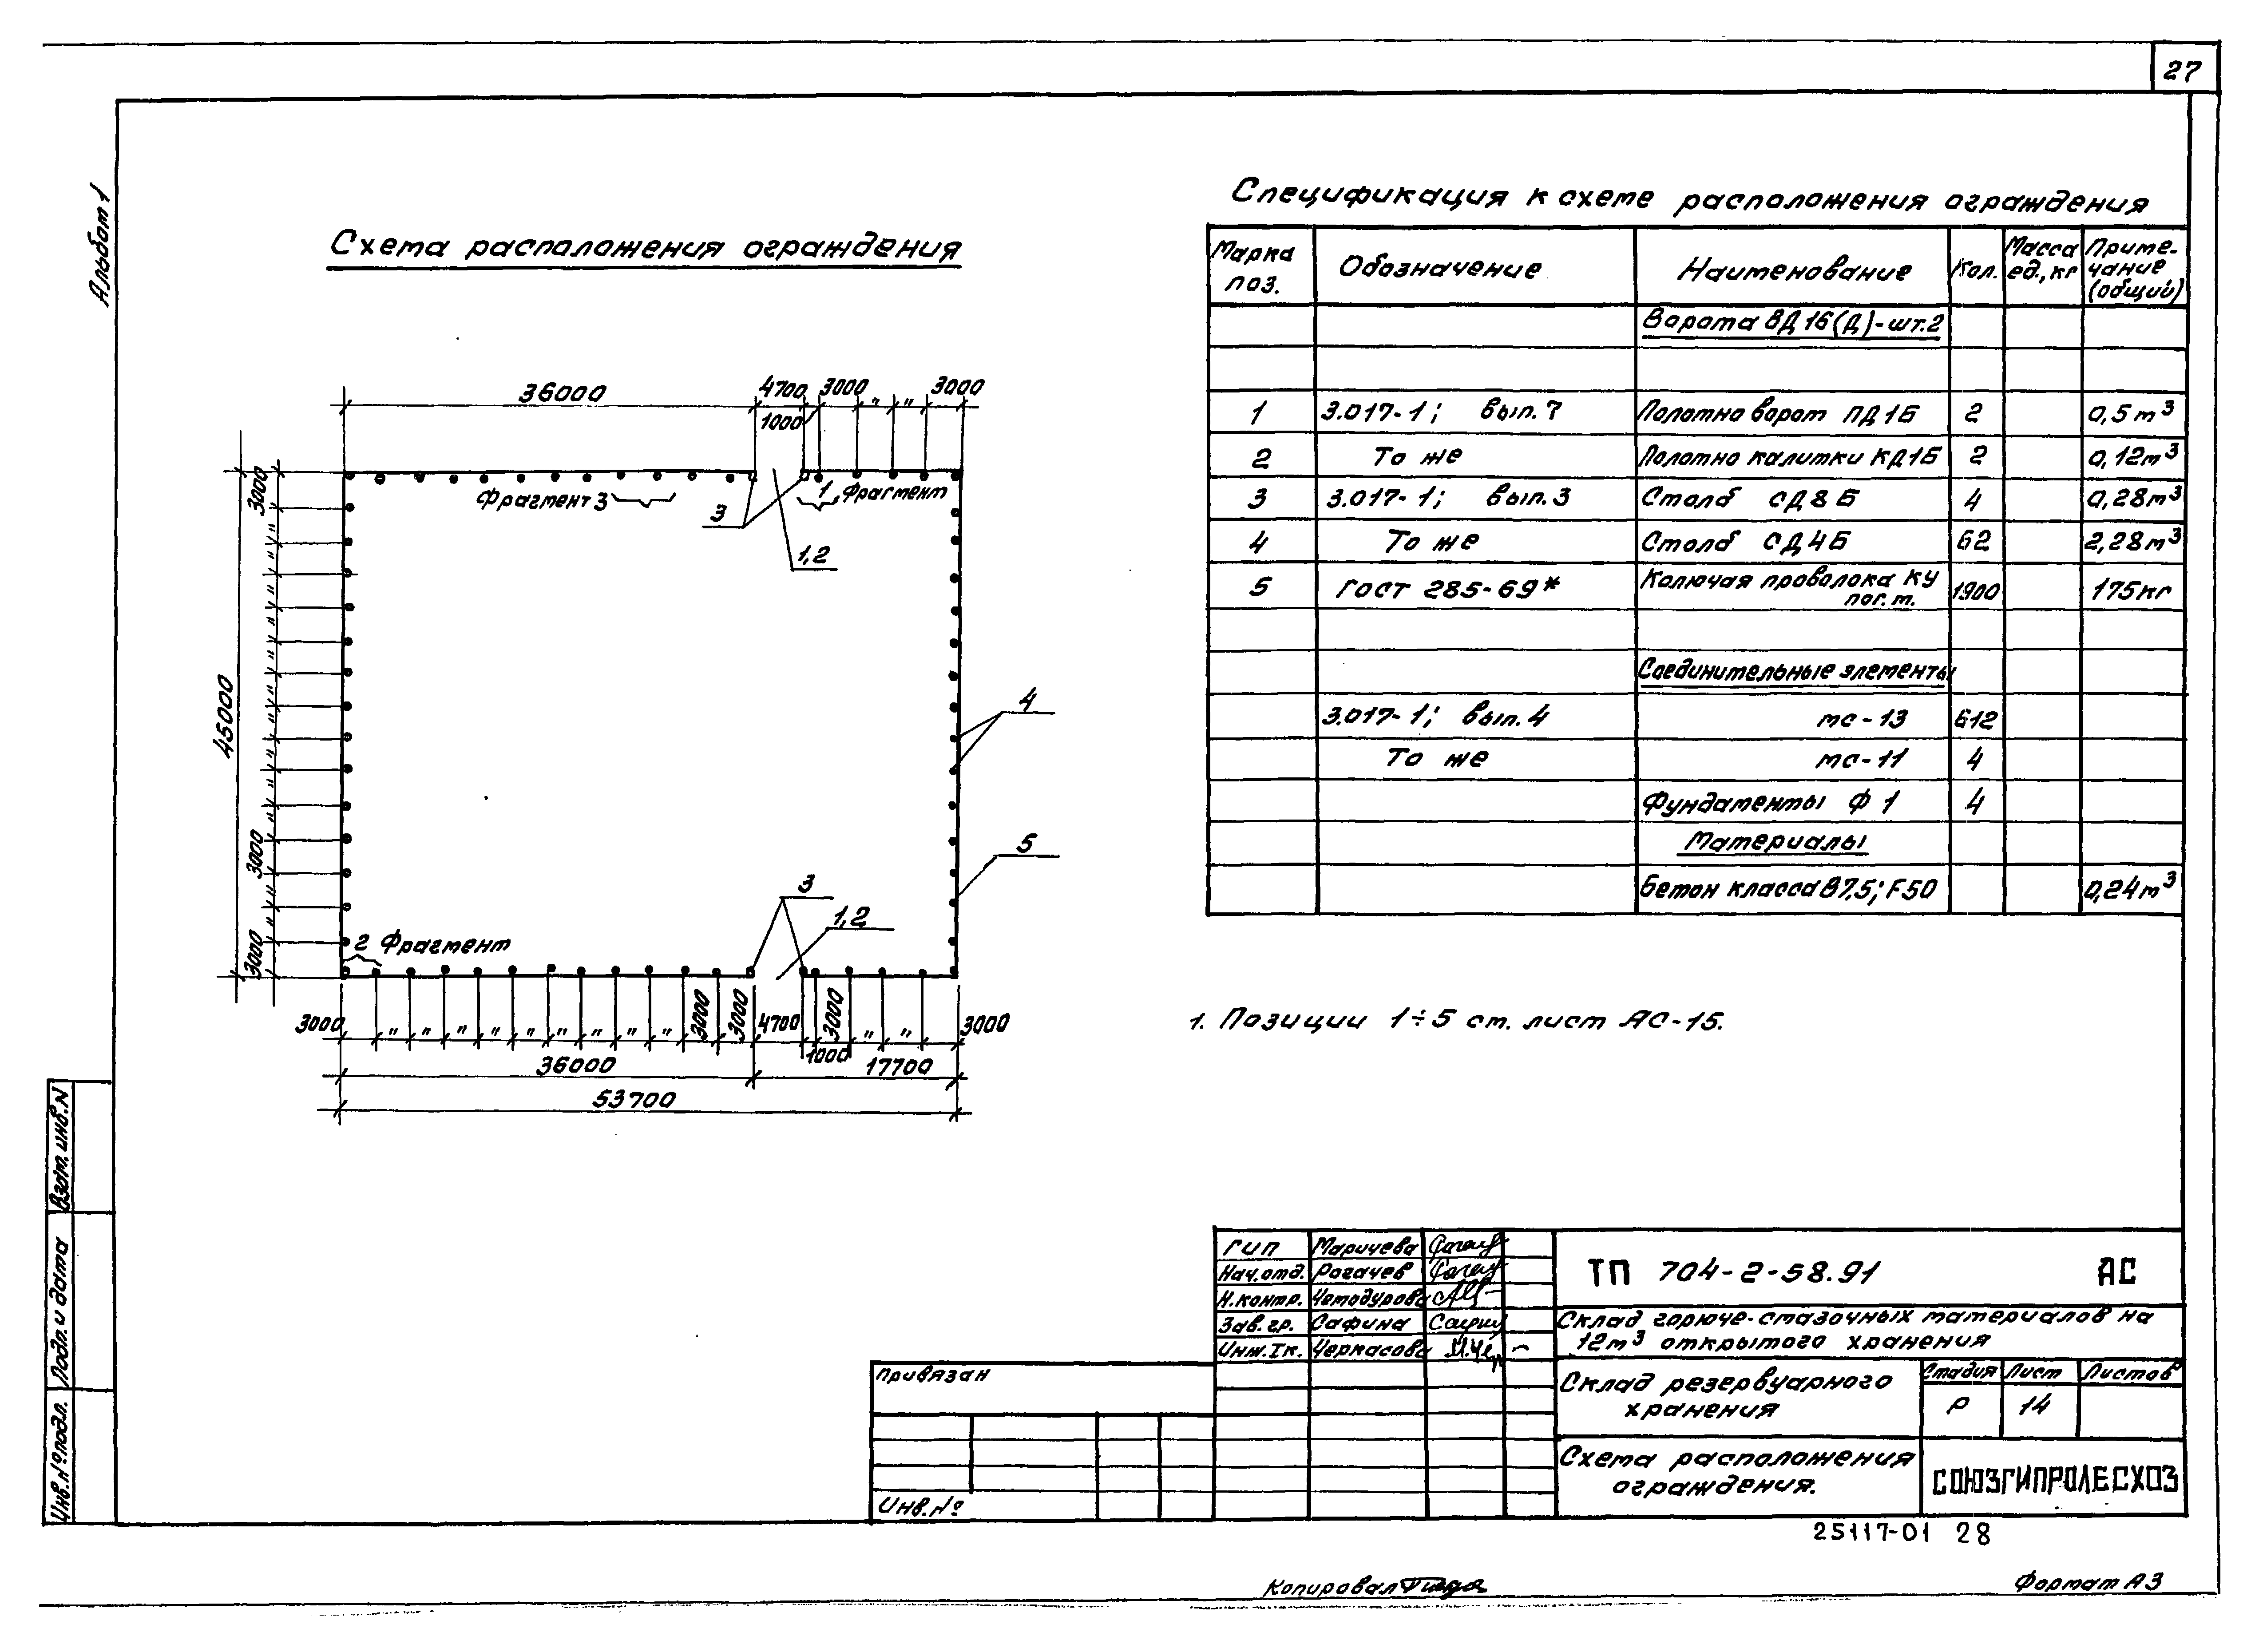 27
Альбом 1
Схема расположения ограждения
36000 4700 3000 " " 3000
1000
3000
"
45000
3000
3000
Фрагмент 3
1 Фрагмент
3
1,2
4
5
3
1,2
2 Фрагмент
3000 " " " " " " " " " 3000 3000 4700 3000 " " 3000
1000
36000 17700
53700
Спецификация к схеме расположения ограждения
Марка поз. Обозначение Наименование Кол. Масса ед., кг Примечание (общий)
Ворота ВД 1б (Д) - шт. 2
1 3.017-1; вып. 7 Полотно ворот ПД 1Б 2 0,5 м3
2 То же Полотно калитки КД1Б 2 0,12 м3
3 3.017-1; вып. 3 Столб СД 8 Б 4 0,28 м3
4 То же Столб СД 4 Б 62 2,28 м3
5 ГОСТ 285-69* Колючая проволока КУ пог. м. 1900 175 кг
Соединительные элементы
3.017-1; вып. 4 МС-13 612
То же МС-11 4
Фундаменты Ф 1 4
Материалы
Бетон класса В7,5; F50 0,24 м3
1. Позиции 1÷5 см. лист АС-15.
ГИП Маричева
Нач. отд. Рогачев
Н. контр. Чемодурова
Зав. гр. Сафина
Инж. Iк. Черкасова
ТП 704-2-58.91 АС
Склад горюче-смазочных материалов на
12 м3 открытого хранения
Склад резервуарного
хранения
Стадия Лист Листов
Р 14
Схема расположения
ограждения.
СОЮЗГИПРОЛЕСХОЗ
Привязан
Инв. №
Взам. инв. N
Подп. и дата
Инв. № подл.
25117-01 28
Копировал
Формат А3